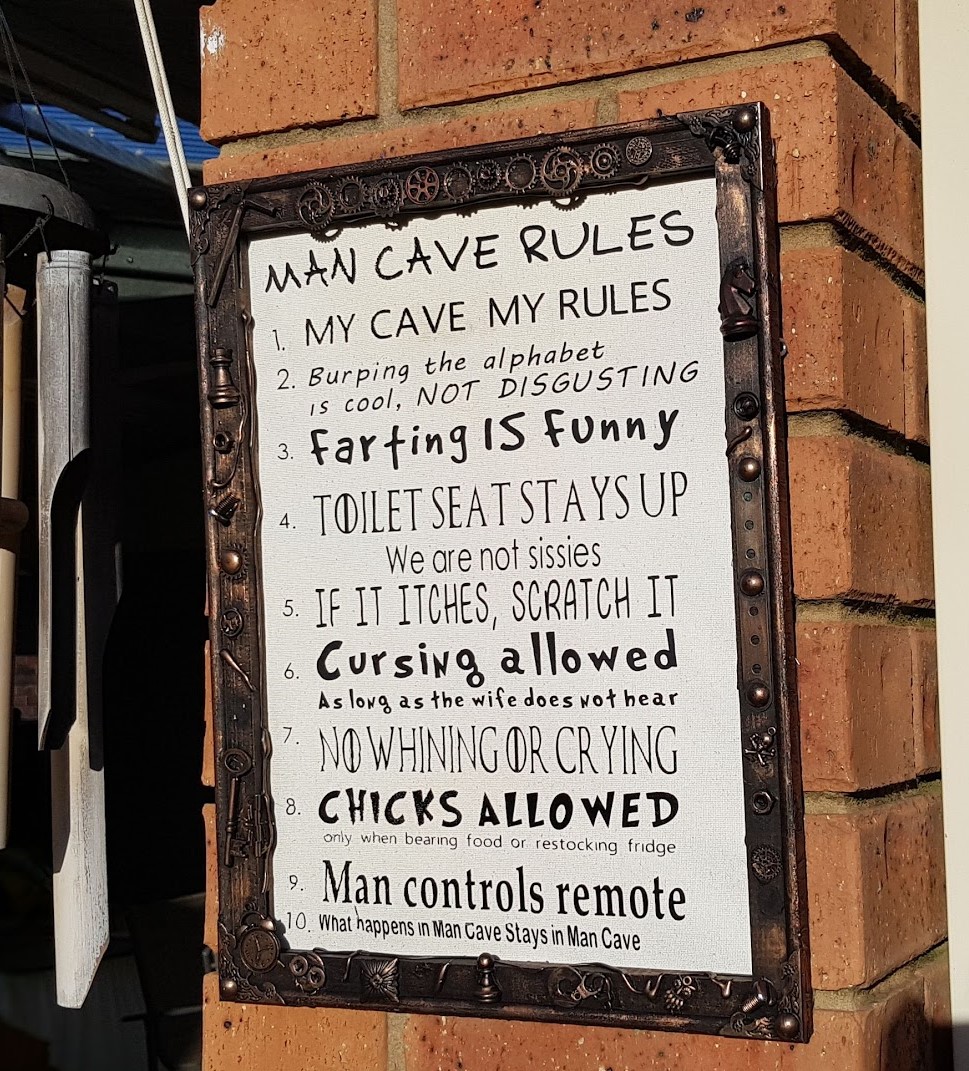 MAN CAVE RULES
1. MY CAVE MY RULES
2. Burping the alphabet
is cool, NOT DISGUSTING
3. Farting IS Funny
4. TOILET SEAT STAYS UP
We are not sissies
5. IF IT ITCHES, SCRATCH IT
6. Cursing allowed
As long as the wife does not hear
7. NO WHINING OR CRYING
8. CHICKS ALLOWED
only when bearing food or restocking fridge
9. Man controls remote
10. What happens in Man Cave Stays in Man Cave